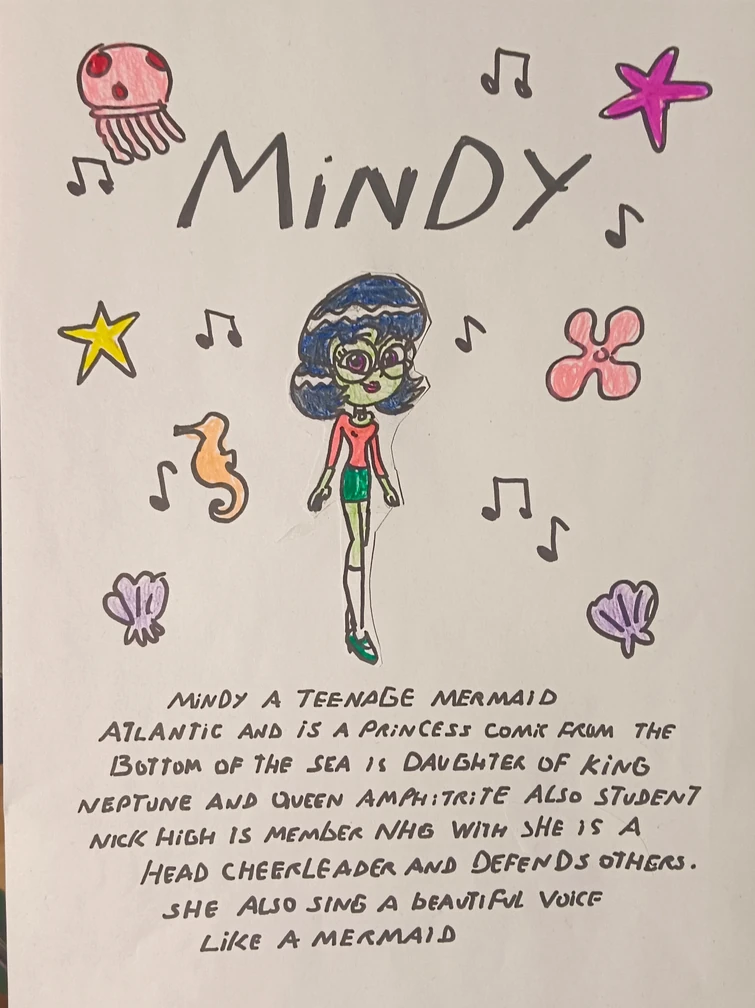 MiNDY
MiNDY A TEENAGE MERMAID
ATLANTIC AND iS A PRiNCESS COMiC FROM THE
BOTTOM OF THE SEA iS DAUGHTER OF KiNG
NEPTUNE AND QUEEN AMPHiTRiTE ALSO STUDENT
NiCK HiGH iS MEMbER NHG WiTH SHE iS A
HEAD CHEERLEADER AND DEFENDS OTHERS.
SHE ALSO SiNG A bEAUTiFUL VOiCE
LiKE A MERMAiD